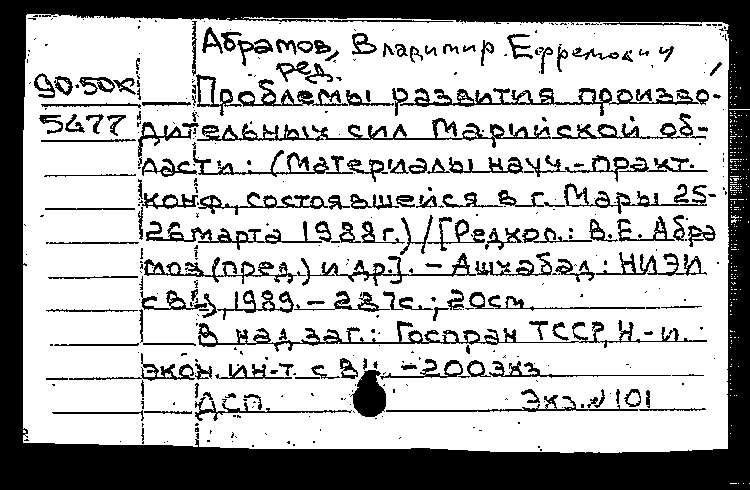 Абрамов, Владимир Ефремович,
ред.
90-50к Проблемы развития произво-
5477 дительных сил Марийской об-
ласти: (Материалы науч.-практ.
конф., состоявшейся в г. Мары 25-
26 марта 1988г.) / [Редкол.: В.Е. Абра
мов (пред.) и др.]. – Ашхабад: НИЭИ
с ВЦ, 1989. – 227с.; 20см.
В надзаг.: Госплан ТССР, Н.-и.
экон. ин-т с ВЦ. – 200экз
ДСП. Экз. N 101